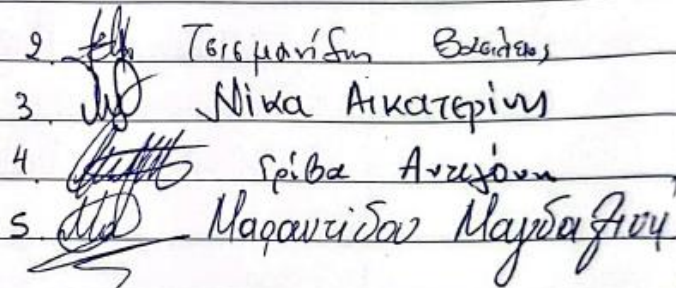 2. Τσισμανίδης Βασίλειος
3. Νίκα Αικατερίνη
4. Γρίβα Αντιγόνη
5. Μαραντίδου Μαγδαληνή